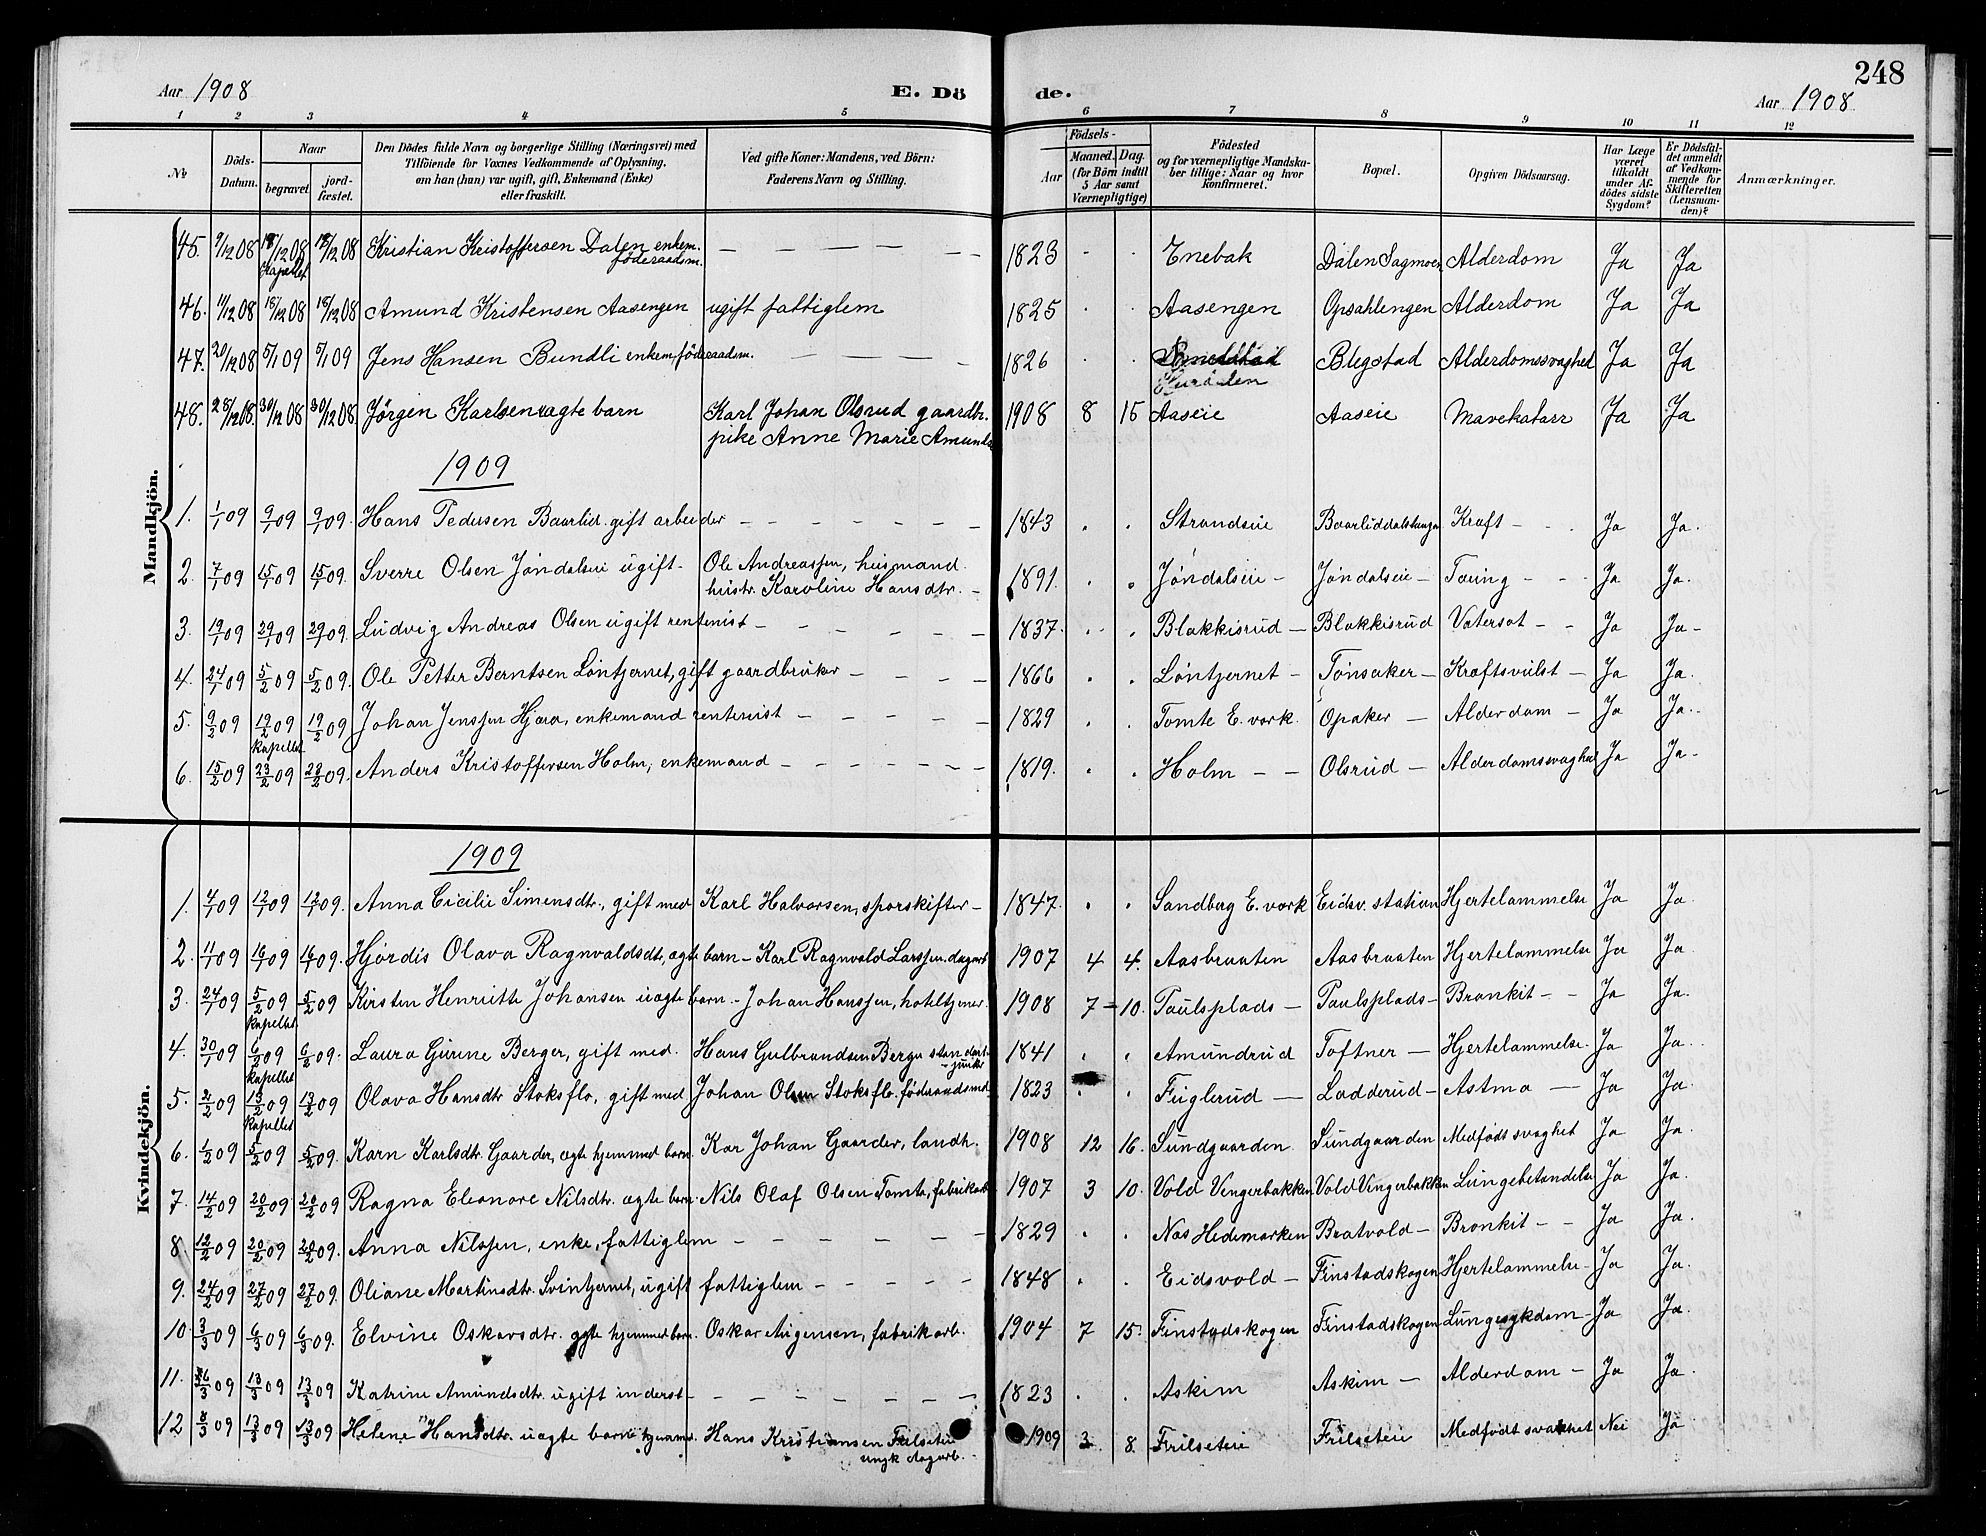 248
Aar 1908 E. Dö de. Aar 1908.
1 2 3 4 5 6 7 8 9 10 11 12
№ Döds-Datum. Naar begravet jordfæstet. Den Dödes fulde Navn og borgerlige Stilling (Næringsvei) med Tilföiende for Voxnes Vedkommende af Oplysning, om han (hun) var ugift, gift, Enkemand (Enke) eller fraskilt. Ved gifte Koner: Mandens, ved Börn: Faderens Navn og Stilling. Födsels- Aar Maaned. Dag. (for Börn indtil 5 Aar samt Værnepligtige) Födested og for værnepligtige Mandskaber tillige: Naar og hvor konfirmeret. Bopæl. Opgiven Dödsaarsag. Har Læge været tilkaldt under Afdödes sidste Sygdom? Er Dödsfaldet anmeldt af Vedkommende for Skifteretten (Lensmanden)? Anmærkninger.
Mandkjön.
45. 9/12 08 18/12 08 Kapellet 18/12 08 Kristian Kristoffersen Dalen enkem. föderaadsm. — — — — 1823 Enebak Dalen Sagmoen Alderdom Ja Ja
46. 11/12 08 18/12 08 18/12 08 Amund Kristensen Aasengen ugift fattiglem 1825 Aasengen Opsahlengen Alderdom Ja Ja
47. 20/12 08 5/1 09 5/1 09 Jens Hansen Bundli enkem, föderaadm. — — — 1826 Hurdalen Blegstad Alderdomssvaghed Ja Ja
48. 28/12 08. 30/12 08 30/12 08 Jørgen Karlsen uægte barn Karl Johan Olsrud gaardbr. 1908 8 15 Aaseie Aaseie Mavekatarr Ja Ja
pike Anne Marie Amunds
1909
1. 1/1 09 9/1 09 9/1 09. Hans Pedersen Baarlid. gift arbeider — — — — 1843 Strandeie Baarliddalstangen Kraft — Ja Ja.
2. 7/1 09 15/1 09 15/1 09. Sverre Olsen Jøndalseie ugift - Ole Andreassen, husmand. 1891. Jøndalseie — Jøndalseie — Tæring — Ja Ja.
hustr. Karoline Hansdtr. —
3. 19/1 09 29/1 09 29/1 09. Ludvig Andreas Olsen ugift rentenist — — — — 1837. Blakkisrud — Blakkisrud Vatersot — — Ja Ja —
4. 24/1 09 5/2 09 5/2 09. Ole Petter Berntsen Løntjernet, gift gaardbruker — — — 1866 Løntjernet — Tønsaker — Kraftsvulst — Ja Ja.
5. 9/2 09 19/2 09 kapellet 19/2 09 Johan Jenssen Hjæra, enkemand rentenist — — — 1829 Tomte E. værk. Opaker — Alderdom — Ja Ja.
6. 15/2 09 23/2 09 23/2 09. Anders Kristoffersen Holm, enkemand — — — — 1819. Holm — — Olsrud — Alderdomssvaghed Ja Ja —
Kvindekjön.
1909
1. 4/1 09 12/1 09 12/1 09. Anna Cicilie Simensdtr., gift med Karl Halvorsen, sporskifter — 1847. Sandberg E. værk Eidsv. station Hjertelammelse Ja Ja.
2. 11/1 09 16/1 09 16/1 09. Hjørdis Olava Ragnvaldsdtr, ægte barn — Karl Ragnvald Larssen, dagarb 1907 4 4. Aasbraaten Aasbraaten Hjertelammelse Ja Ja.
3. 24/1 09 5/2 09 Kapellet 5/2 09 Kirsten Henriette Johansen uægte barn. - Johan Hanssen, hoteltjener. 1908 7 — 10. Paulsplads — Paulsplads — Bronkit — — Ja Ja.
4. 30/1 09 6/2 09 Kapellet 6/2 09. Laura Gurine Berger, gift med. Hans Gulbrandsen Berger standart- 1841 Amundrud Toftner — Hjertelammelse. Ja Ja.
- junker
5. 2/2 09 13/2 09 Kapellet 13/2 09 Olava Hansdtr Stoksflo, gift med Johan Olsen Stoksflo föderaadsmd. 1823 Fuglerud — Ladderud — Astma — Ja Ja.
6. 1/2 09 5/2 09 5/2 09. Karn Karlsdtr. Gaarder, ægte hjemmed barn. Kar Johan Gaarder, landh. 1908 12 16. Sundgaarden Sundgaarden Medfødt svaghet Ja Ja.
7. 14/2 09 20/2 09 20/2 09 Ragna Eleonore Nilsdtr. ægte barn. Nils Olaf Olsen Tomte, fabrikarb 1907 3 10. Vold Vingerbakken Vold Vingerbakken Lungebetændelse Ja Ja.
8. 12/2 09 20/2 09 20/2 09. Anna Nilssen, enke, fattiglem — — — — 1829 Næs Hedemarken Bratvold — Bronkit — — Ja Ja.
9. 24/2 09 27/2 09 27/2 09. Oliane Martinsdtr. Svintjernet, ugift fattiglem — — — — 1848 Eidsvold — Finstadskogen Hjertelammelse. Ja Ja.
10. 3/3 09 6/3 09 6/3 09. Elvine Oskarsdtr. ægte hjemmed barn. Oskar Augensen, fabrikarb. 1904 7 15. Finstadskogen Finstadskogen Lungesykdom — Ja Ja.
11. 6/3 09 13/3 09 13/3 09 Katrine Amundsdtr. ugift inderst — — — — 1823 Askim Askim — Alderdom — Ja Ja.
12 8/3 09 13/3 09 13/3 09 Helene Hansdtr. uægte barn hjemmd. Hans Kristiansen Frilseteie 1909 3 8 Frilseteie Frilseteie Medfødt svakhet Nei Ja
ungk dagarb. —